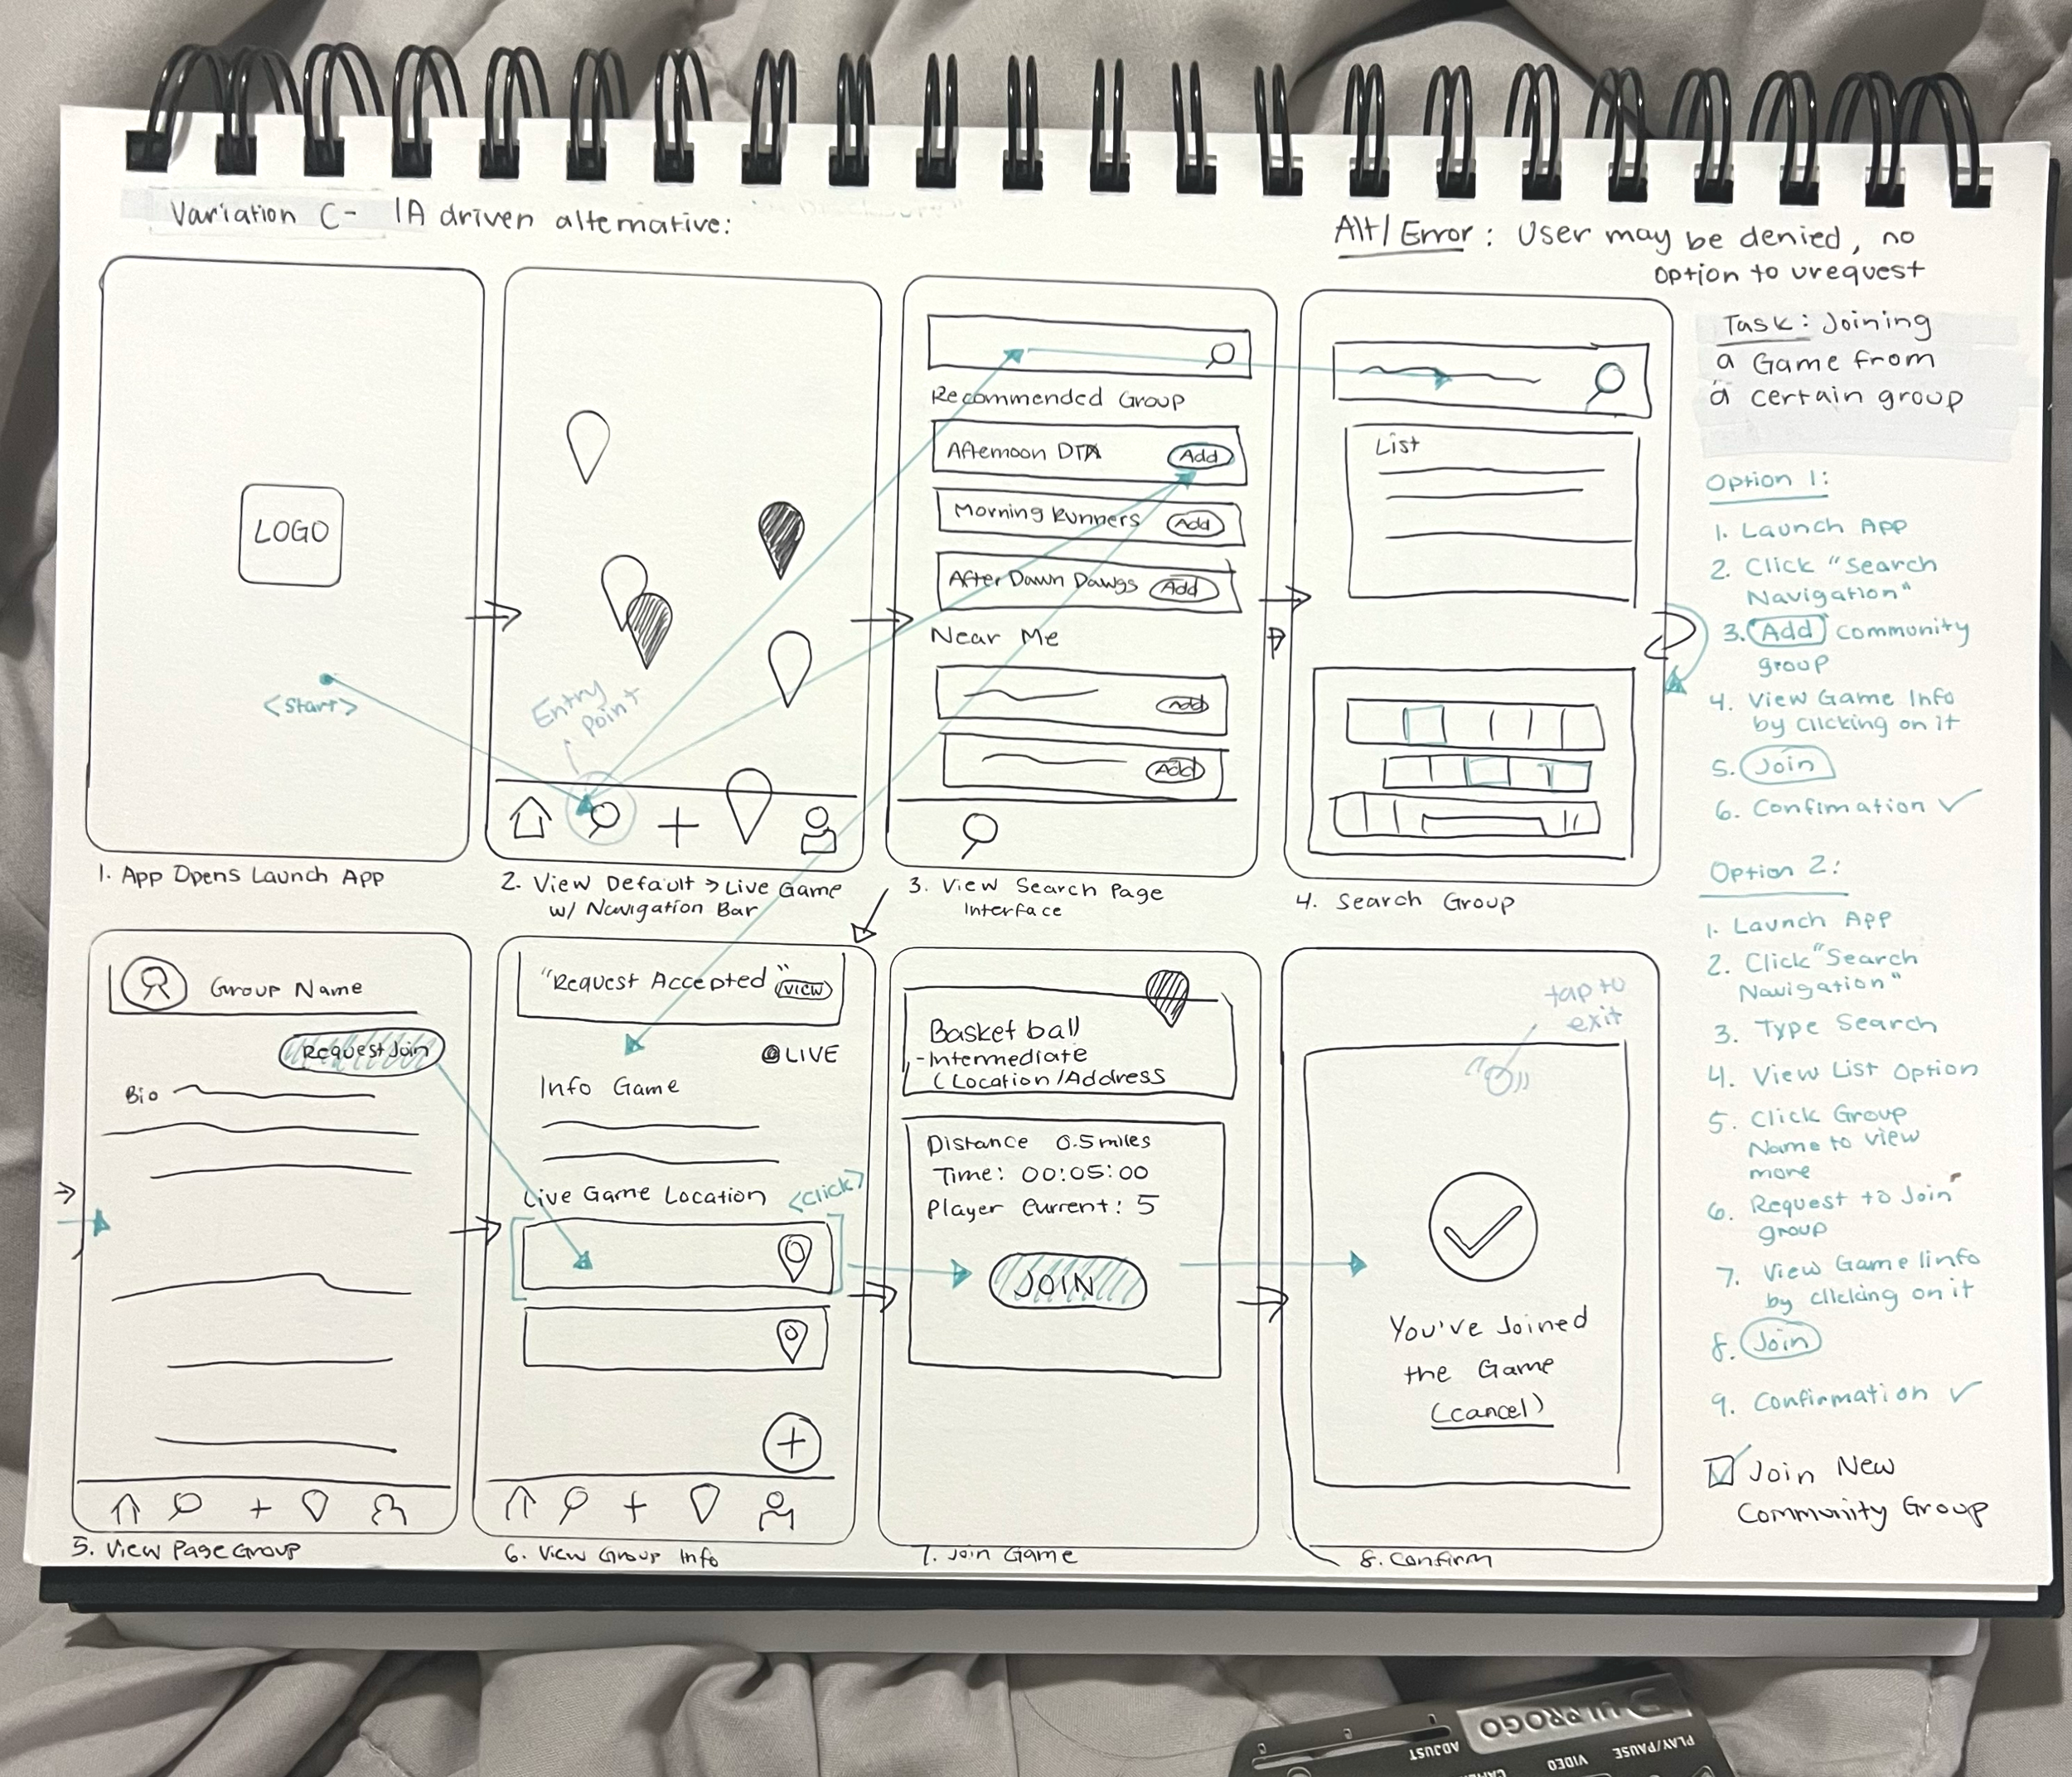 Variation C- IA driven alternative:
Alt/Error: User may be denied, no
option to urequest
Task: Joining
a Game from
a certain group
LOGO
<Start>
1. App Opens Launch App
Entry
point
2. View Default > Live Game
w/ Navigation Bar
Recommended Group
Afternoon DTA Add
Morning Runners Add
After Dawn Dawgs Add
Near Me
Add
Add
3. View Search Page
Interface
List
4. Search Group
Group Name
Request Join
Bio
5. View Page Group
"Request Accepted" VIEW
LIVE
Info Game
Live Game Location <click>
6. View Group Info
Basketball
-Intermediate
(Location/Address
Distance 0.5 miles
Time: 00:05:00
Player Current: 5
JOIN
7. Join Game
tap to
exit
You've Joined
the Game
(cancel)
8. Confirm
Option 1:
1. Launch App
2. Click "Search
Navigation"
3. Add community
group
4. View Game Info
by clicking on it
5. Join
6. Confirmation ✓
Option 2:
1. Launch App
2. Click "Search
Navigation"
3. Type Search
4. View List Option
5. Click Group
Name to view
more
6. Request to Join
group
7. View Game Iinfo
by clicking on it
8. Join
9. Confirmation ✓
Join New
Community Group
ADJUST
VIDEO
PLAY/PAUSE